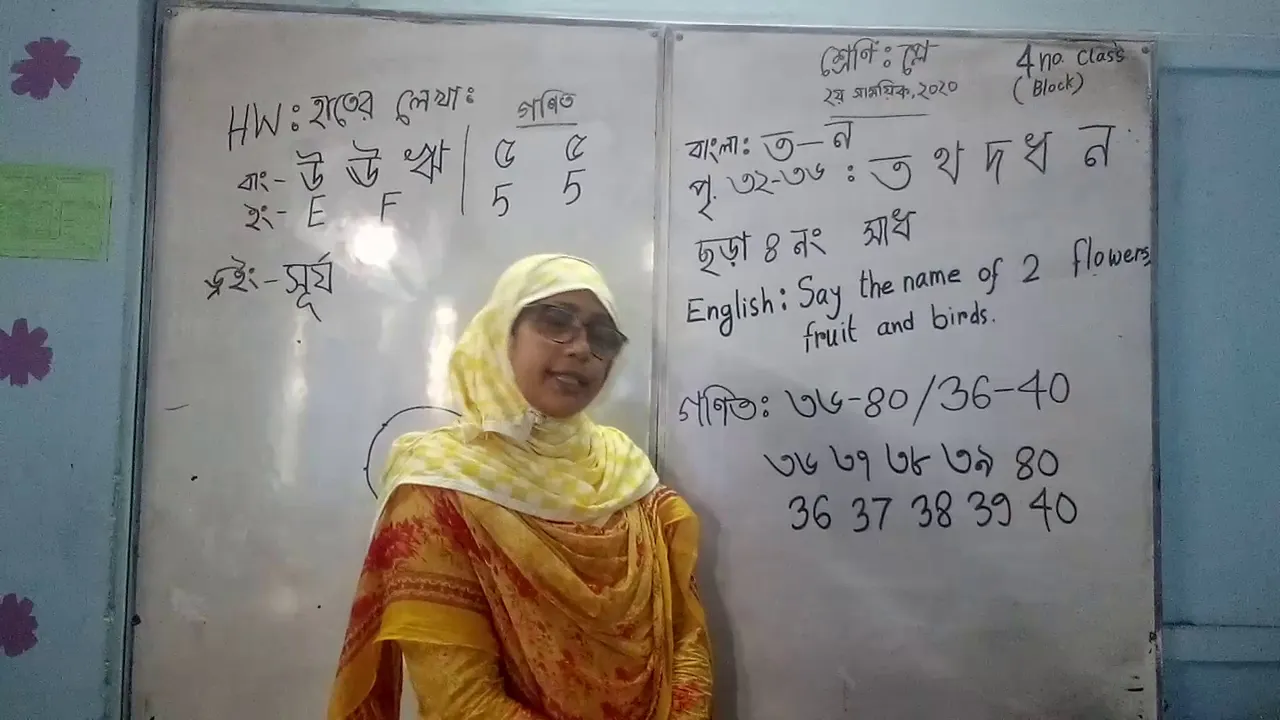 HW: হাতের লেখা:
গণিত
বাং- উ ঊ ঋ
৫ ৫
ইং- E F
5 5
ড্রইং- সূর্য
শ্রেণি: প্লে
২য় সাময়িক, ২০২০
4 no. Class
(Block)
বাংলা: ত-ন
পৃ. ৩২-৩৬: ত থ দ ধ ন
ছড়া ৪ নং সাধ
English: Say the name of 2 flowers,
fruit and birds.
গণিত: ৩৬-৪০/36-40
৩৬ ৩৭ ৩৮ ৩৯ ৪০
36 37 38 39 40